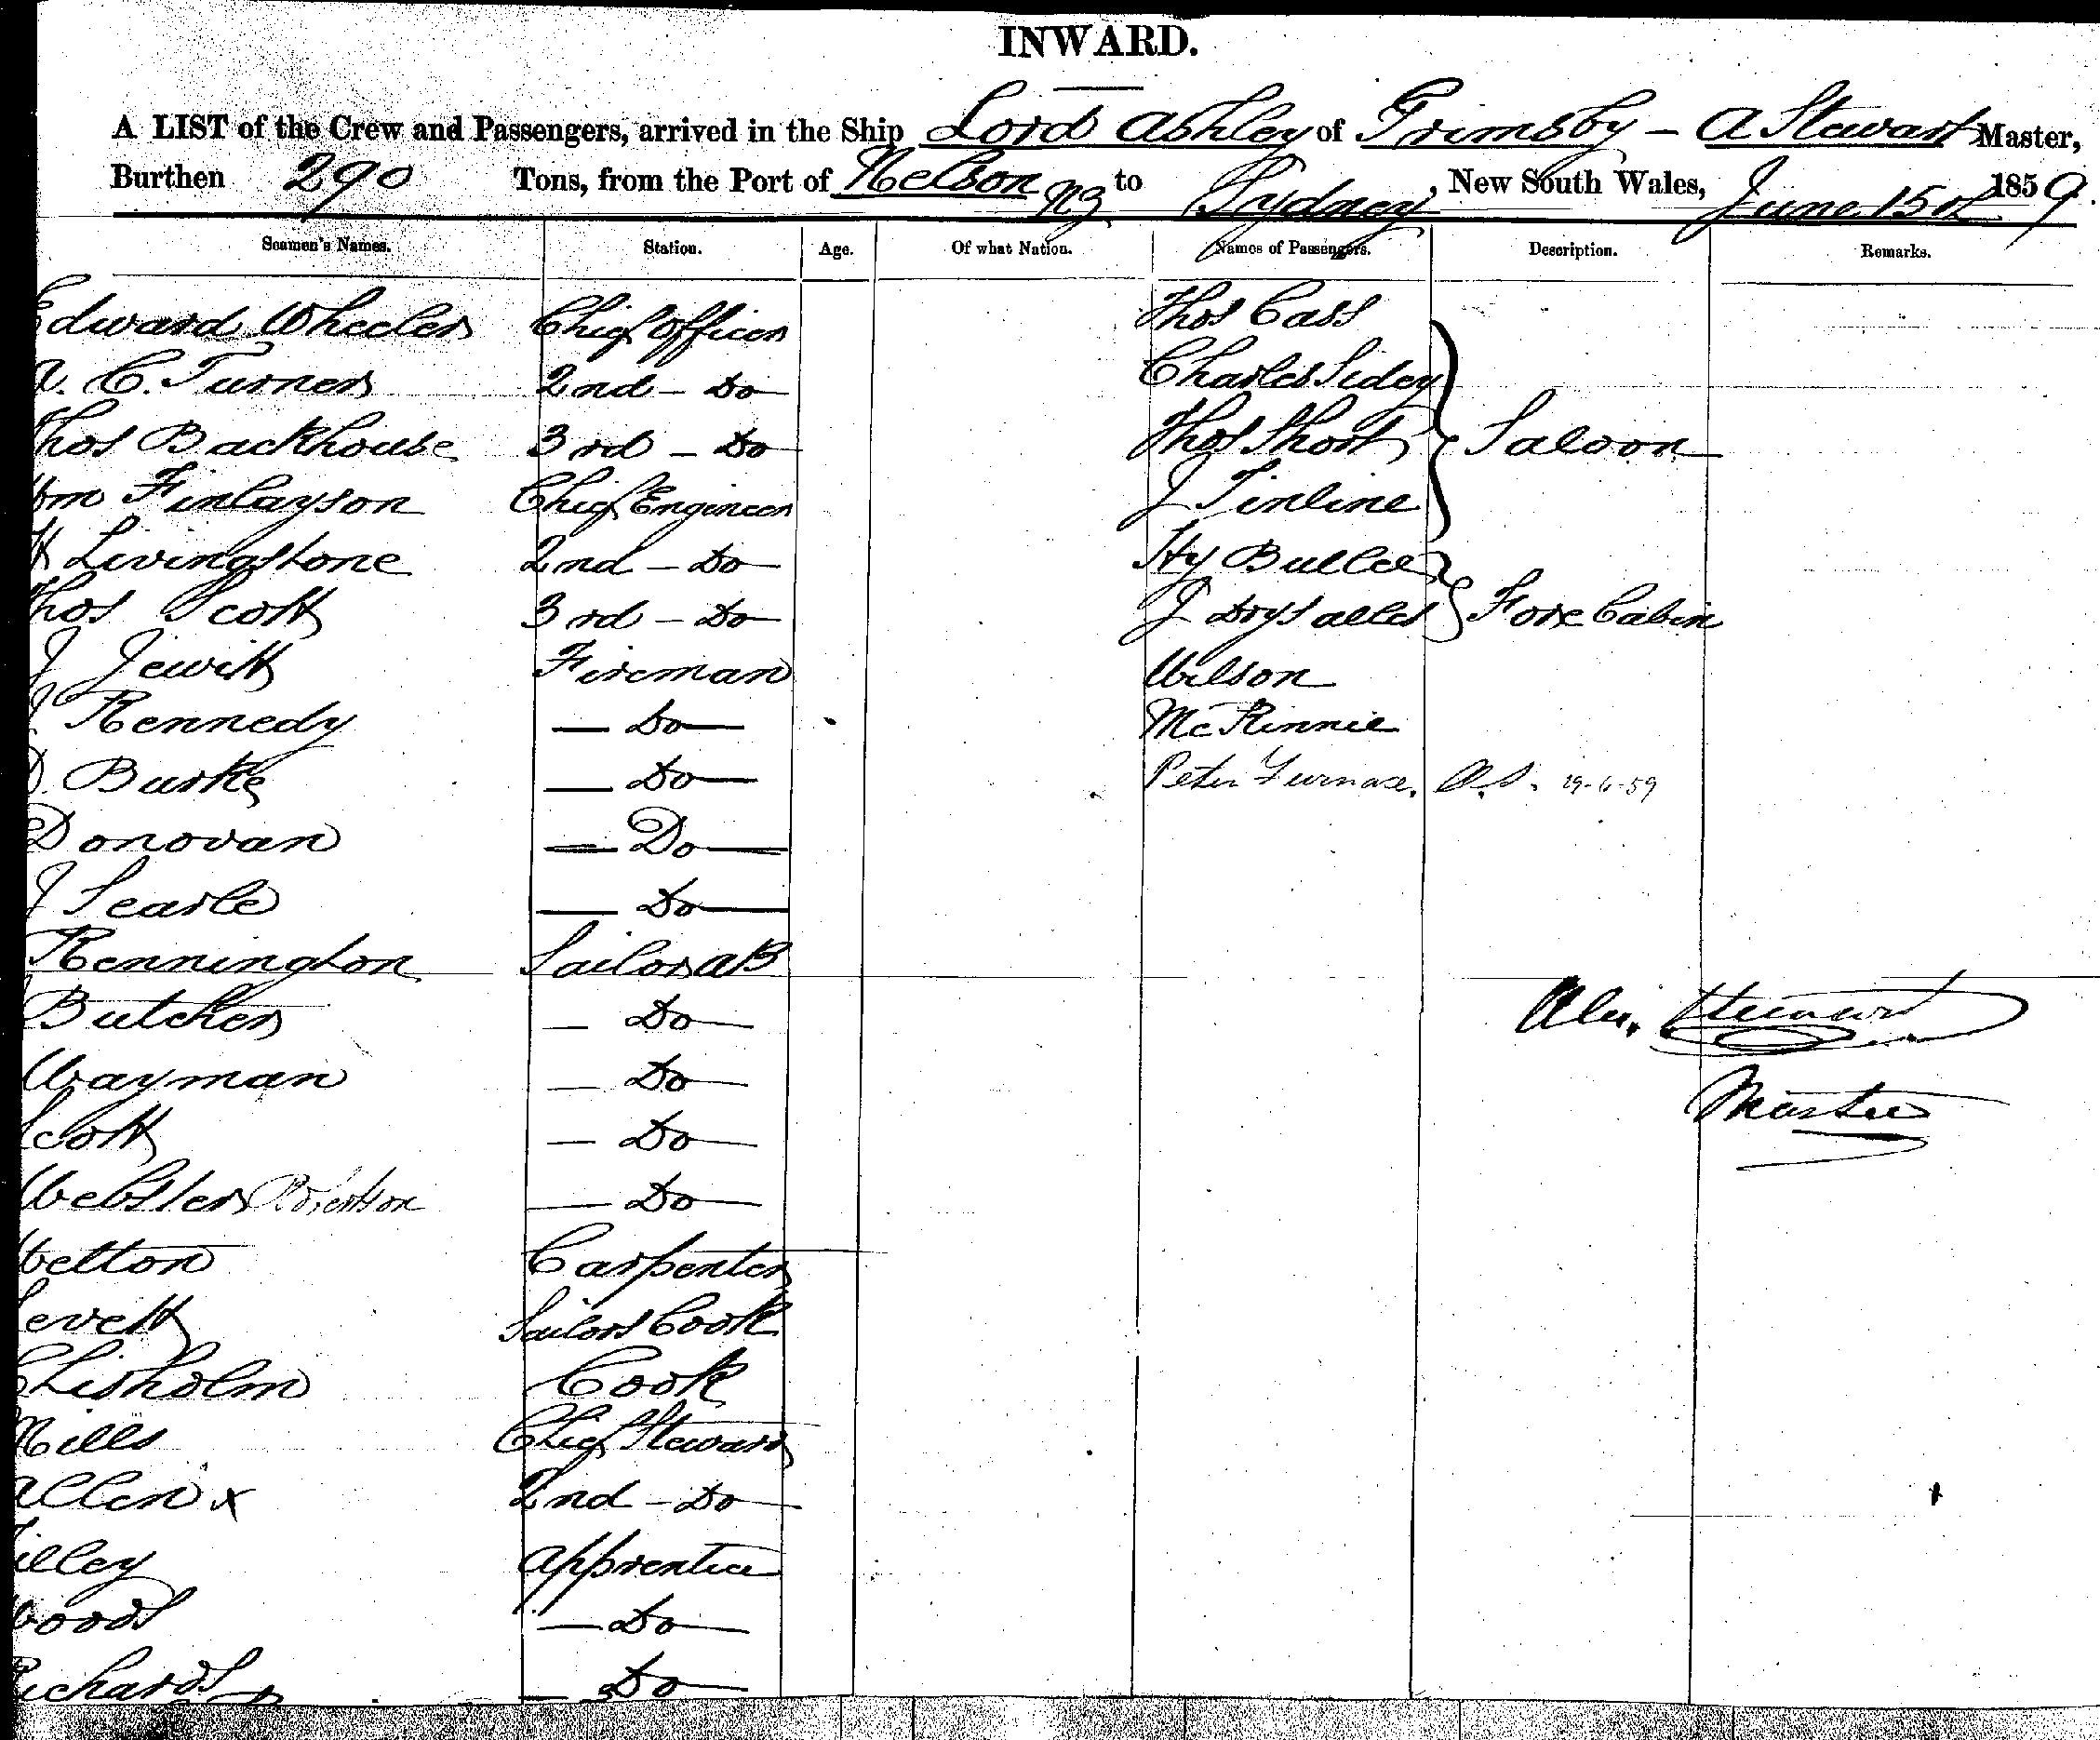 INWARD.
A LIST of the Crew and Passengers, arrived in the Ship Lord Ashley of Grimsby - A Stewart Master,
Burthen 290 Tons, from the Port of Nelson NZ to Sydney, New South Wales, June 15th 1859.
Seamen's Names. Station. Age. Of what Nation. Names of Passengers. Description. Remarks.
Edward Wheeler Chief Officer Thos Cass
A. C. Turner 2nd - Do Charles Sidey
Thos Backhouse 3rd - Do Thos Short Saloon
Wm Finlayson Chief Engineer J Tinline
Livingstone 2nd - Do Hy Buller
Thos Scott 3rd - Do J Drysalled Fore Cabin
J Jewitt Fireman Wilson
J Kennedy - Do - McKinnie
D. Burke - Do - Peter Furnace. O.S. 29-6-59
Donovan - Do -
J Searle - Do -
Kennington Sailor AB
Butcher - Do - Alex. Stewart
Wayman - Do - Master
Scott - Do -
Webster Robertson - Do -
Welton Carpenter
Levett Sailors Cook
Chisholm Cook
Mills Chief Steward
Allen x 2nd - Do
Tilley Apprentice
Woods - Do -
Richards - Do -